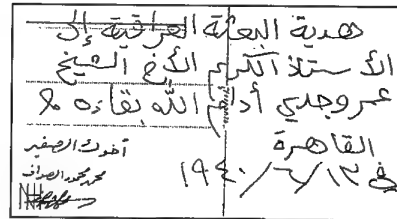 هدية البعثة العراقية إلى
الأستاذ الكريم الأخ الشيخ
عمر وجدي أدام الله بقاءه
القاهرة
في ١٩٤٠/٦/١٢
أخوك الصغير
محمد محمود الصواف